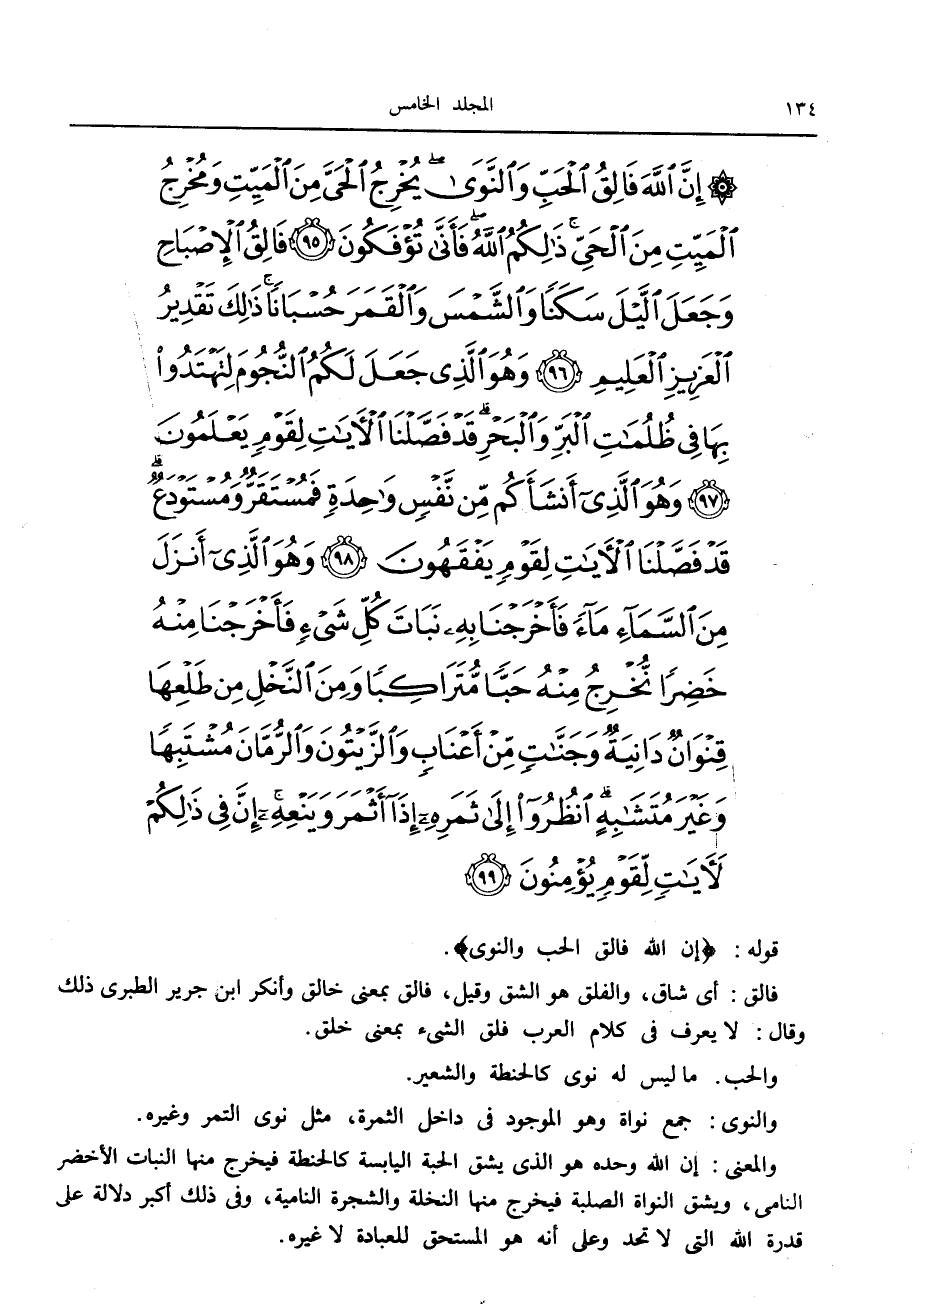 ١٣٤ المجلد الخامس
۞ إِنَّ ٱللَّهَ فَالِقُ ٱلْحَبِّ وَٱلنَّوَىٰ ۖ يُخْرِجُ ٱلْحَىَّ مِنَ ٱلْمَيِّتِ وَمُخْرِجُ
ٱلْمَيِّتِ مِنَ ٱلْحَىِّ ۚ ذَٰلِكُمُ ٱللَّهُ ۖ فَأَنَّىٰ تُؤْفَكُونَ ٩٥ فَالِقُ ٱلْإِصْبَاحِ
وَجَعَلَ ٱلَّيْلَ سَكَنًا وَٱلشَّمْسَ وَٱلْقَمَرَ حُسْبَانًا ۚ ذَٰلِكَ تَقْدِيرُ
ٱلْعَزِيزِ ٱلْعَلِيمِ ٩٦ وَهُوَ ٱلَّذِى جَعَلَ لَكُمُ ٱلنُّجُومَ لِتَهْتَدُوا۟
بِهَا فِى ظُلُمَٰتِ ٱلْبَرِّ وَٱلْبَحْرِ ۗ قَدْ فَصَّلْنَا ٱلْآيَٰتِ لِقَوْمٍ يَعْلَمُونَ
٩٧ وَهُوَ ٱلَّذِىٓ أَنشَأَكُم مِّن نَّفْسٍ وَٰحِدَةٍ فَمُسْتَقَرٌّ وَمُسْتَوْدَعٌ ۗ
قَدْ فَصَّلْنَا ٱلْآيَٰتِ لِقَوْمٍ يَفْقَهُونَ ٩٨ وَهُوَ ٱلَّذِىٓ أَنزَلَ
مِنَ ٱلسَّمَآءِ مَآءً فَأَخْرَجْنَا بِهِۦ نَبَاتَ كُلِّ شَىْءٍ فَأَخْرَجْنَا مِنْهُ
خَضِرًا نُّخْرِجُ مِنْهُ حَبًّا مُّتَرَاكِبًا وَمِنَ ٱلنَّخْلِ مِن طَلْعِهَا
قِنْوَانٌ دَانِيَةٌ وَجَنَّٰتٍ مِّنْ أَعْنَابٍ وَٱلزَّيْتُونَ وَٱلرُّمَّانَ مُشْتَبِهًا
وَغَيْرَ مُتَشَٰبِهٍ ۗ ٱنظُرُوٓا۟ إِلَىٰ ثَمَرِهِۦٓ إِذَآ أَثْمَرَ وَيَنْعِهِۦٓ ۚ إِنَّ فِى ذَٰلِكُمْ
لَآيَٰتٍ لِّقَوْمٍ يُؤْمِنُونَ ٩٩
قوله : ﴿إن الله فالق الحب والنوى﴾.
فالق : أى شاق، والفلق هو الشق وقيل، فالق بمعنى خالق وأنكر ابن جرير الطبرى ذلك
وقال : لا يعرف فى كلام العرب فلق الشىء بمعنى خلق.
والحب. ما ليس له نوى كالحنطة والشعير.
والنوى : جمع نواة وهو الموجود فى داخل الثمرة، مثل نوى التمر وغيره.
والمعنى : إن الله وحده هو الذى يشق الحبة اليابسة كالحنطة فيخرج منها النبات الأخضر
النامى، ويشق النواة الصلبة فيخرج منها النخلة والشجرة النامية، وفى ذلك أكبر دلالة على
قدرة الله التى لا تحد وعلى أنه هو المستحق للعبادة لا غيره.